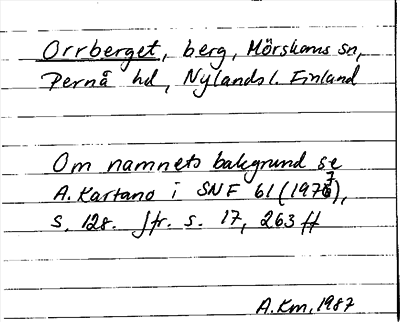 Orrberget, berg, Mörskoms sn,
Pernå hd, Nylands l. Finland
Om namnets bakgrund se
A. Kartano i SNF 61 (1977),
s. 128. Jfr. s. 17, 263 ff
A.Km, 1987